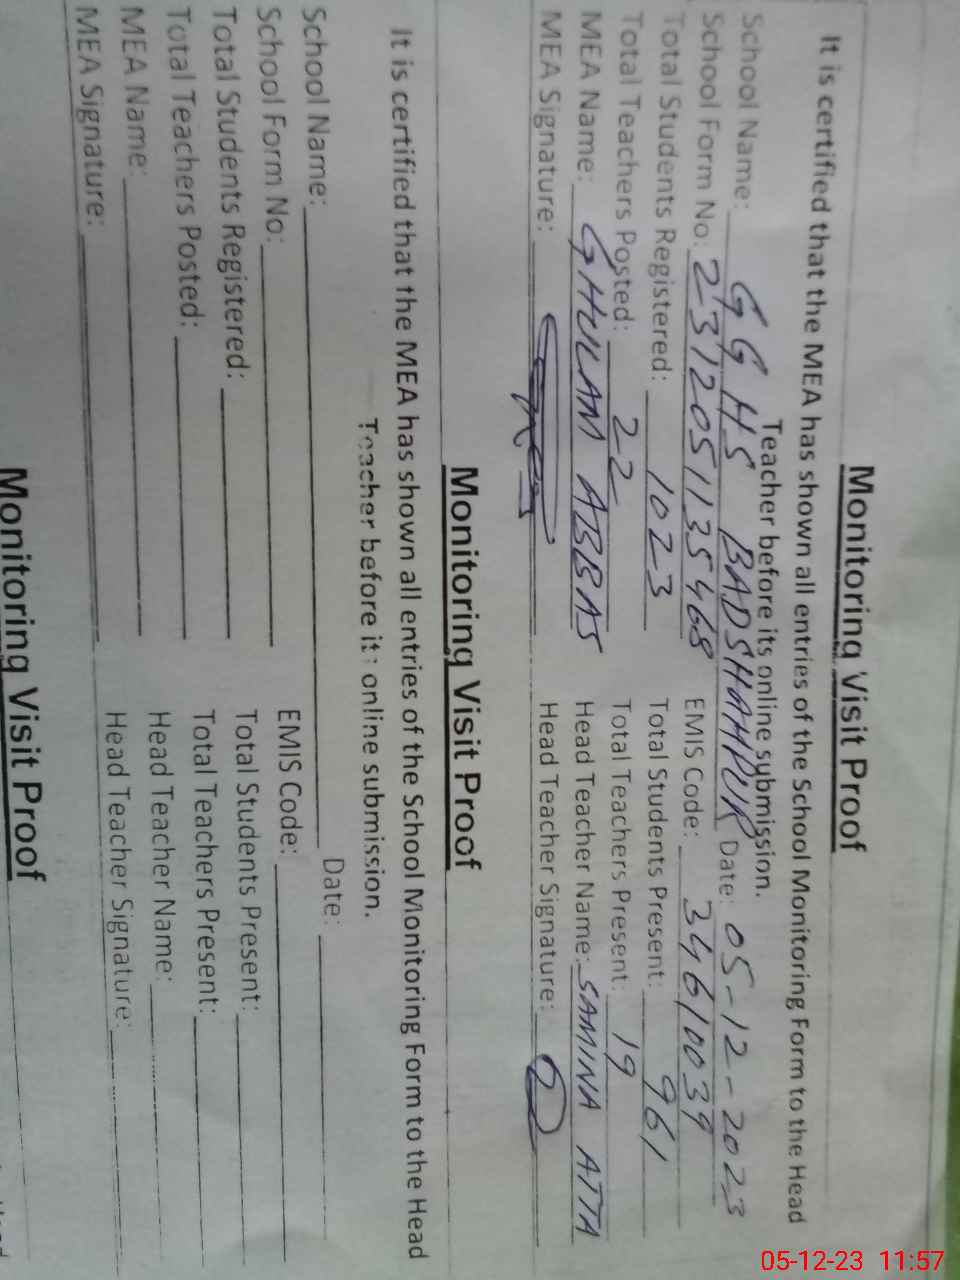 Monitoring Visit Proof
It is certified that the MEA has shown all entries of the School Monitoring Form to the Head
Teacher before its online submission.
School Name: GGHS BADSHAHPUR Date: 05-12-2023
School Form No: 2312051135468 EMIS Code: 34610039
Total Students Registered: 1023 Total Students Present: 961
Total Teachers Posted: 22 Total Teachers Present: 19
MEA Name: GHULAM ABBAS Head Teacher Name: SAMINA ATTA
MEA Signature: Head Teacher Signature:
Monitoring Visit Proof
It is certified that the MEA has shown all entries of the School Monitoring Form to the Head
Teacher before its online submission.
School Name: Date:
School Form No: EMIS Code:
Total Students Registered: Total Students Present:
Total Teachers Posted: Total Teachers Present:
MEA Name: Head Teacher Name:
MEA Signature: Head Teacher Signature:
Monitoring Visit Proof
05-12-23 11:57